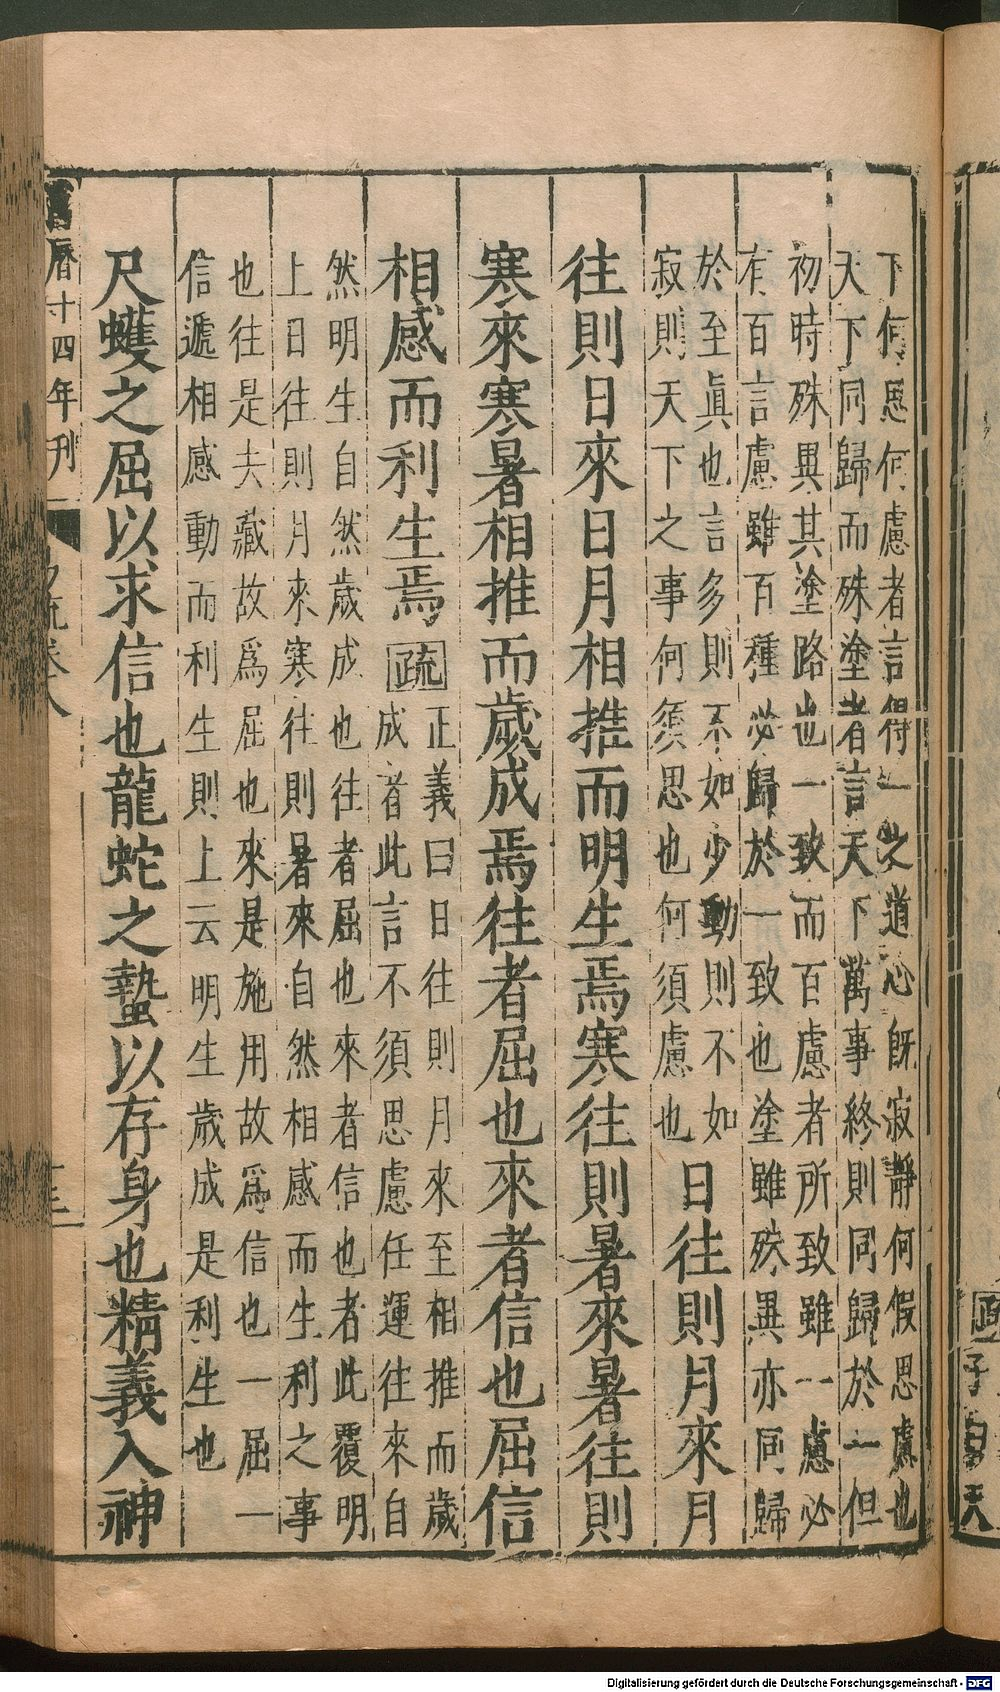 下何思何慮者言得一之道心既寂靜何假思慮也
天下同歸而殊塗者言天下萬事終則同歸於一但
初時殊異其塗路也一致而百慮者所致雖一慮必
有百言慮雖百種必歸於一致也塗雖殊異亦同歸
於至眞也言多則不如少動則不如
寂則天下之事何須思也何須慮也
日往則月來月
往則日來日月相推而明生焉寒往則暑來暑往則
寒來寒暑相推而歲成焉往者屈也來者信也屈信
相感而利生焉疏
正義曰日往則月來至相推而歲
成者此言不須思慮任運往來自
然明生自然歲成也往者屈也來者信也者此覆明
上日往則月來寒往則暑來自然相感而生利之事
也往是夫藏故爲屈也來是施用故爲信也一屈一
信遞相感動而利生則上云明生歲成是利生也
尺蠖之屈以求信也龍蛇之蟄以存身也精義入神
曆十四年刊
疏卷八
Digitalisierung gefördert durch die Deutsche Forschungsgemeinschaft - DFG